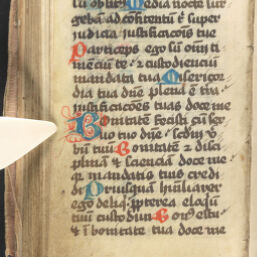 tui oblitꝰ Media nocte sur
gebā ad cōfitentū t̄ super
iudicia iustificacōis tue
Particeps ego sū oīm ti
menciū te · ⁊ custodienciū
mandata tua Misericor
dia tua dn̄e plena ē tr̄a ·
iustificacōes tuas doce me
Bonitatē fecisti cū ser
uo tuo dn̄e · scdm̄ v̓
bū tuū Bonitatē ⁊ disci
plinā ⁊ scienciā doce me
q̄ mandatis tuis credi
di Priusquā hūiliarer
ego deliq̄ · ppterea eloqiū
tuū custodiui Bonꝰ es tu ·
⁊ ī bonitate tua doce me